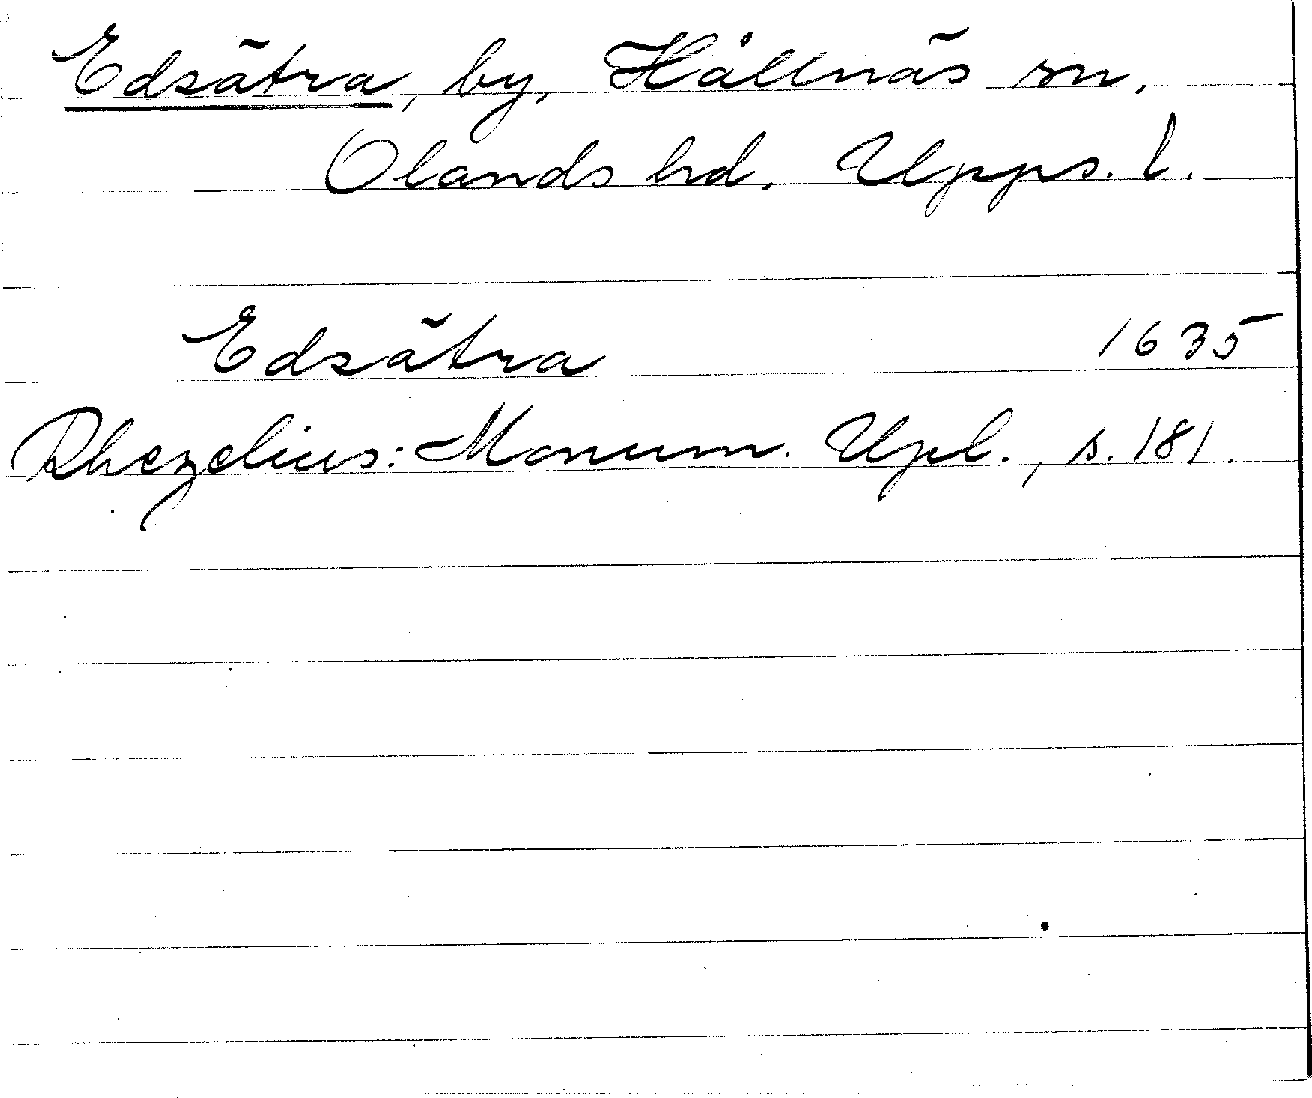 Edsätra, by, Hållnäs sn,
Olands hd. Upps. l.
Edsätra 1635
Rhezelius: Monum. Upl., s. 181.